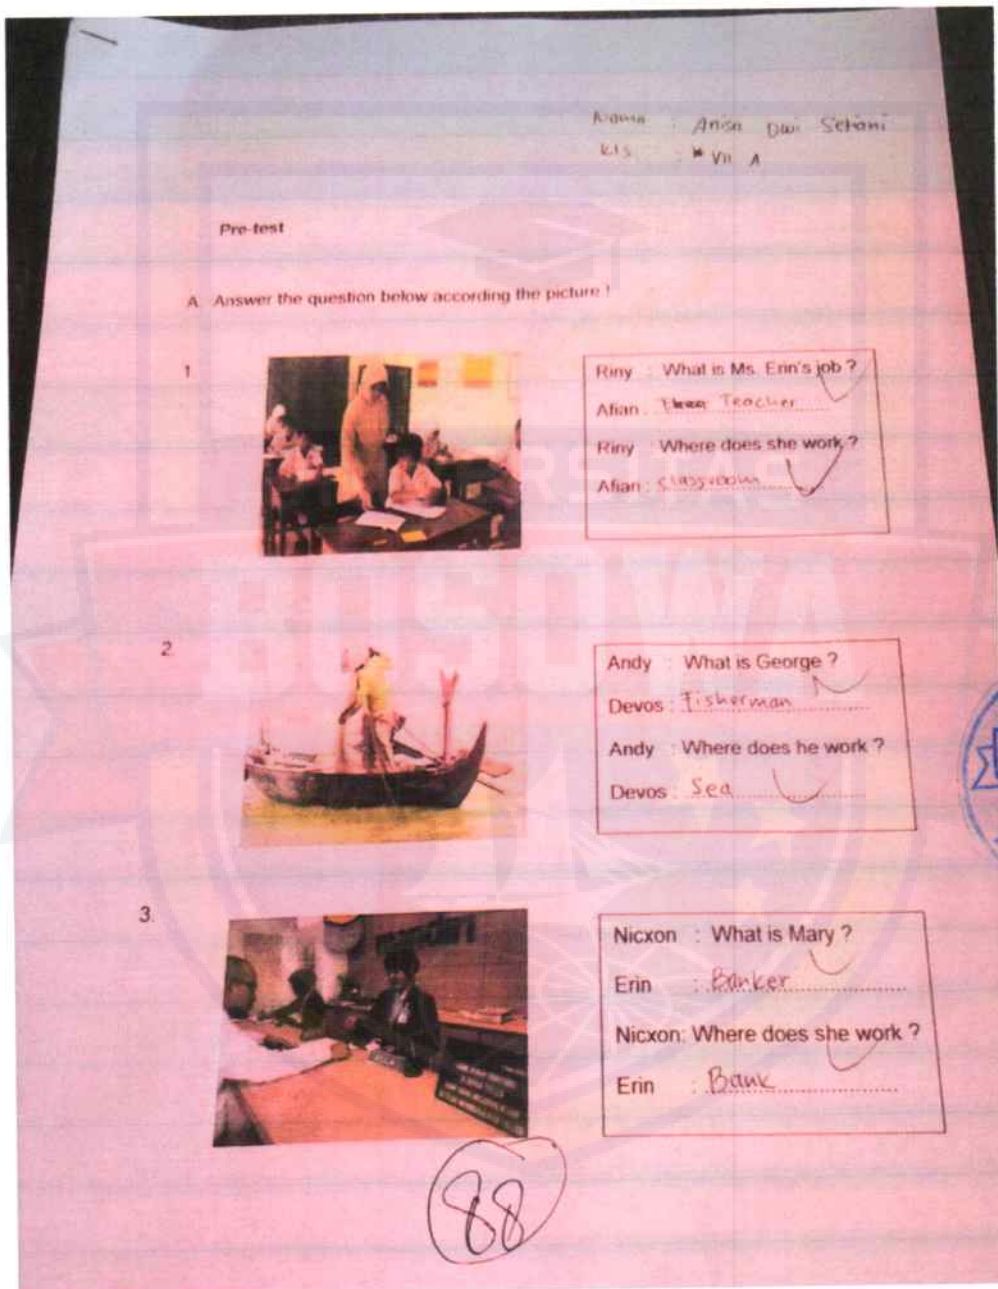 Nama : Anisa Dwi Setiani
Kls : VII A
Pre-test
A. Answer the question below according the picture !
1
Riny : What is Ms. Erin's job ?
Afian : Teacher
Riny : Where does she work ?
Afian : classroom
2.
Andy : What is George ?
Devos : Fisherman
Andy : Where does he work ?
Devos : Sea
3.
Nicxon : What is Mary ?
Erin : Banker
Nicxon: Where does she work ?
Erin : Bank
88
UNIVERSITAS
BOSOWA